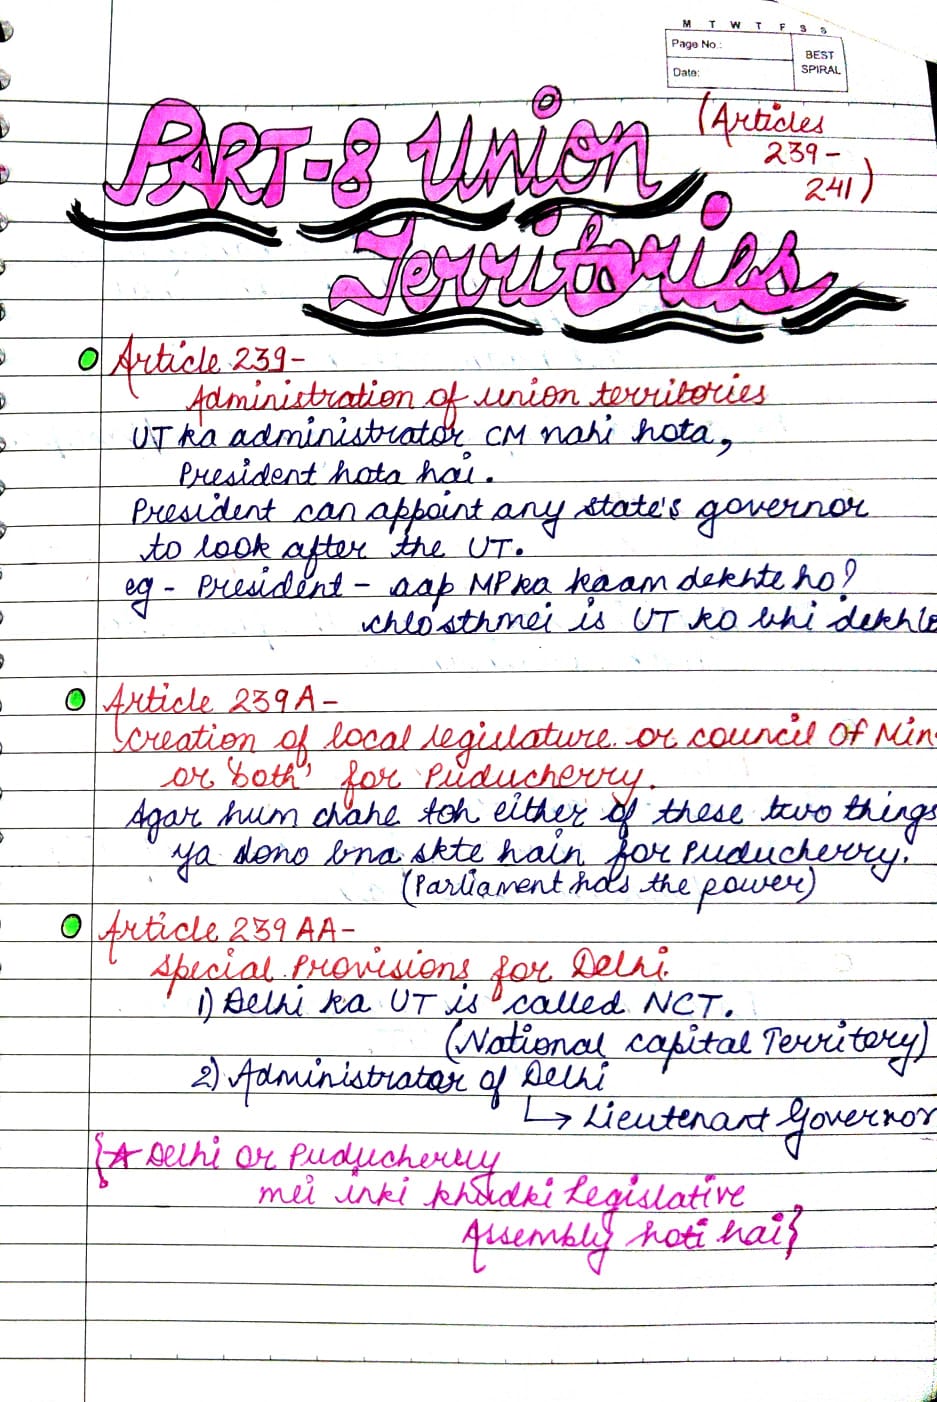 M T W T F S S
Page No.:
Date:
BEST
SPIRAL
PART-8 Union
Territories
(Articles
239-
241)
Article 239-
Administration of union territories
UT ka administrator CM nahi hota,
President hota hai.
President can appoint any state's governor
to look after the UT.
eg - President - aap MP ka kaam dekhte ho?
chlo sthmei is UT ko bhi dekhlo
Article 239A-
Creation of local legislature or council of Min.
or 'both' for Puducherry.
Agar hum chahe toh either of these two things
ya dono bna skte hain for Puducherry.
(Parliament has the power)
Article 239 AA-
Special Provisions for Delhi.
1) Delhi ka UT is called NCT.
(National capital Territory)
2) Administrator of Delhi
↳ Lieutenant Governor
{☆ Delhi or Puducherry
mei inki khudki Legislative
Assembly hoti hai}